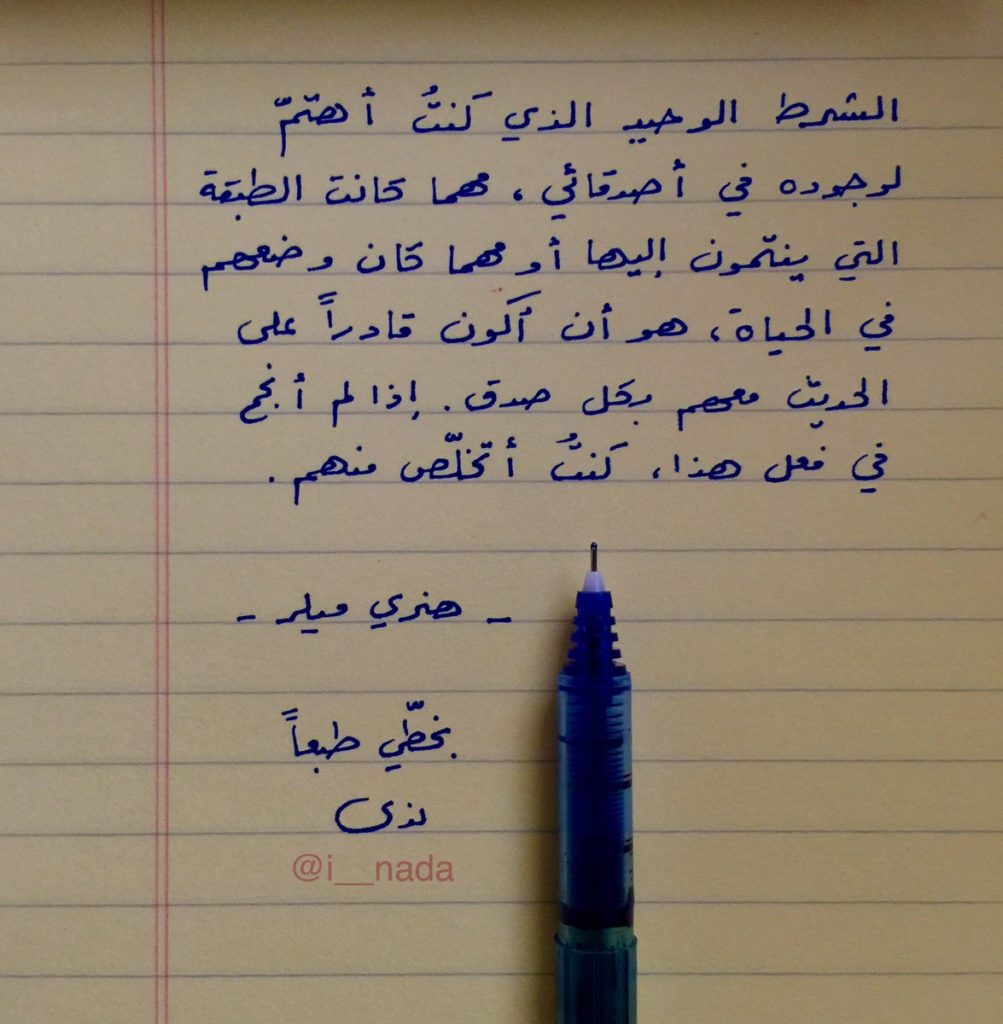 الشرط الوحيد الذي كنتُ أهتمّ
لوجوده في أصدقائي، مهما كانت الطبقة
التي ينتمون إليها أو مهما كان وضعهم
في الحياة، هو أن أكون قادراً على
الحديث معهم بكل صدق. إذا لم أنجح
في فعل هذا، كنتُ أتخلّص منهم.
- هنري ميلر -
بخطّي طبعاً
ندى
@i__nada